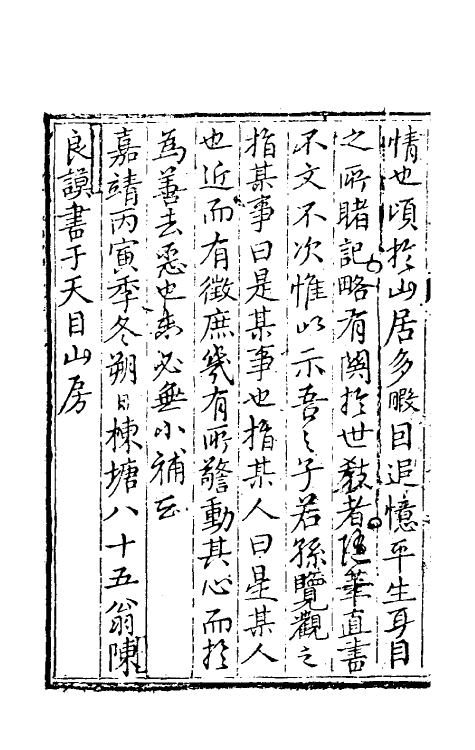 情也頃於山居多暇因追憶平生耳目
之所睹記略有関於世教者随筆直書
不文不次惟以示吾之子若孫覽觀之
指某事曰是某事也指某人曰是某人
也近而有徵庶幾有所警動其心而於
為善去惡也未必無小補云
嘉靖丙寅季冬朔日棟塘八十五翁陳
良謨書于天目山房